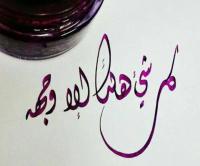 كل شئ هالك إلا وجهه